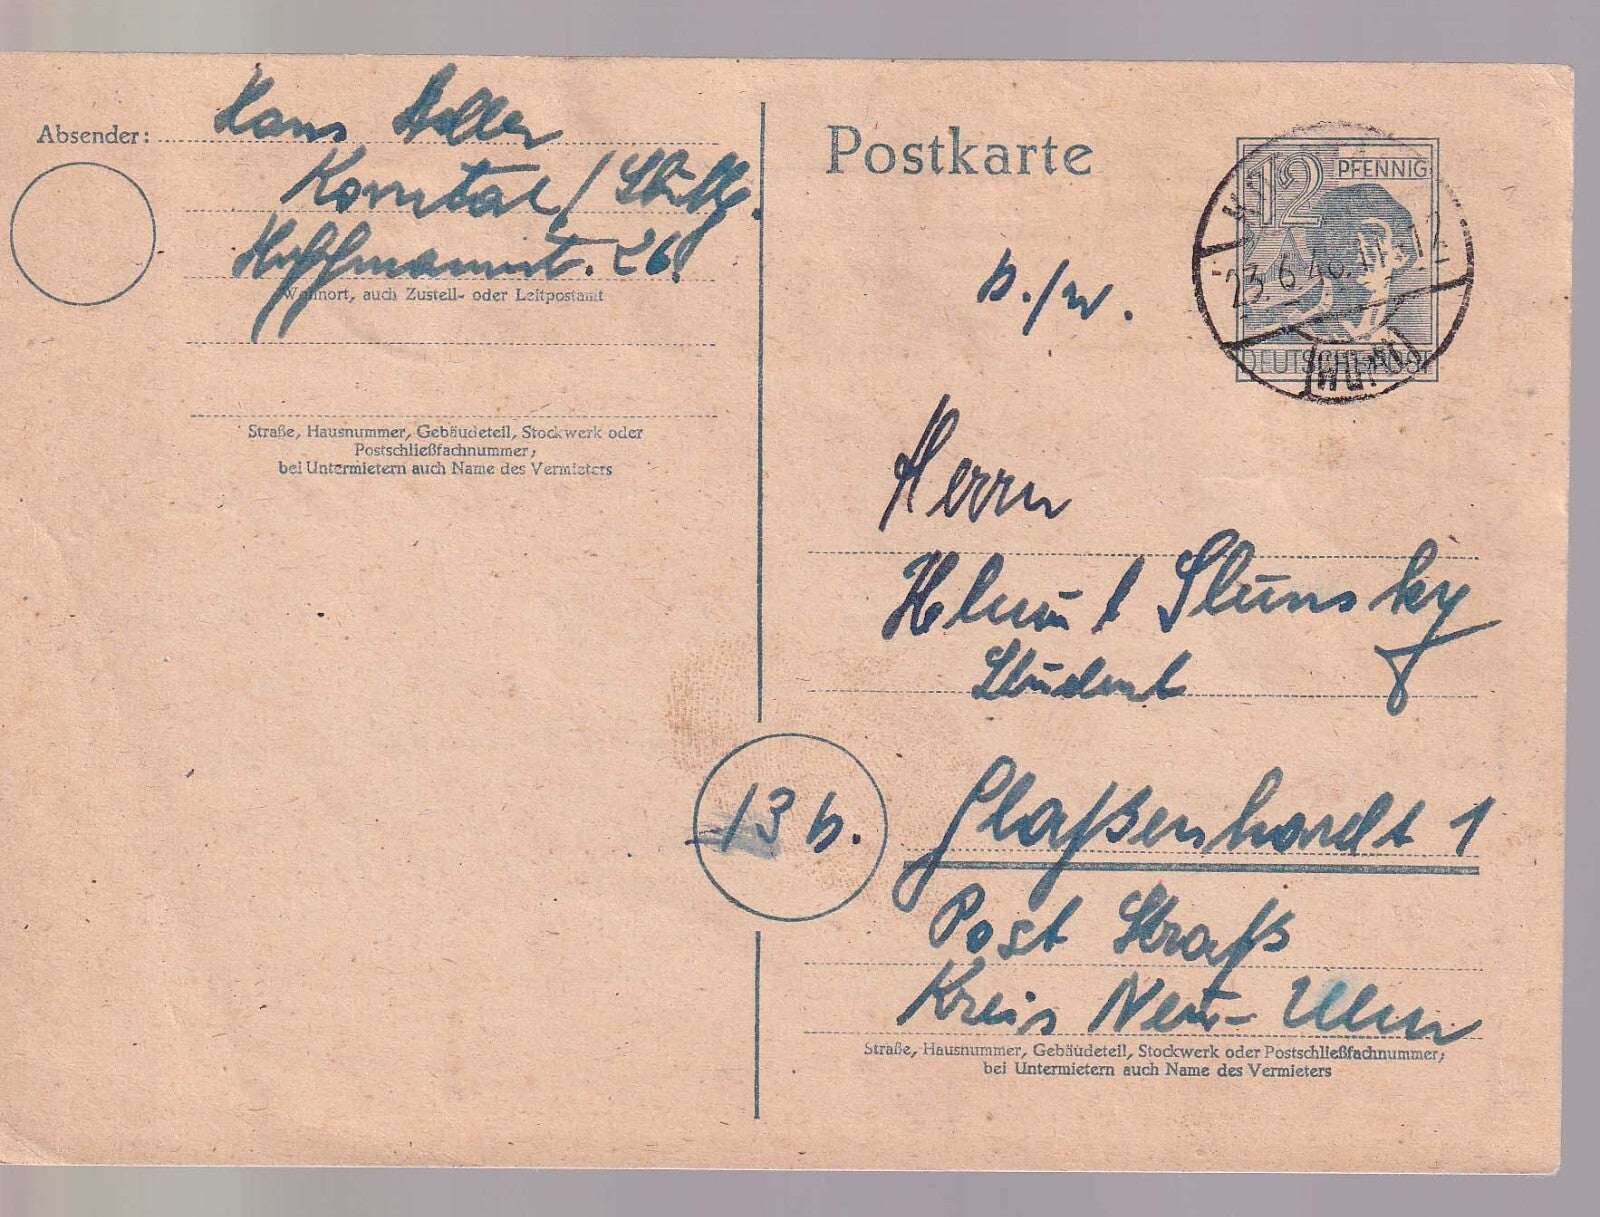 Absender: Hans Adler
Korntal / Stuttg.
Hoffmannst. 26.
Wohnort, auch Zustell- oder Leitpostamt
Straße, Hausnummer, Gebäudeteil, Stockwerk oder
Postschließfachnummer;
bei Untermietern auch Name des Vermieters
Postkarte
12 PFENNIG
23.6.46.11-12
(WÜRTT)
DEUTSCHE POST
b./w.
Herrn
Helmut Slunsky
Student
13 b.
Glaßenhardt 1
Post Straß
Kreis Neu-Ulm
Straße, Hausnummer, Gebäudeteil, Stockwerk oder Postschließfachnummer;
bei Untermietern auch Name des Vermieters